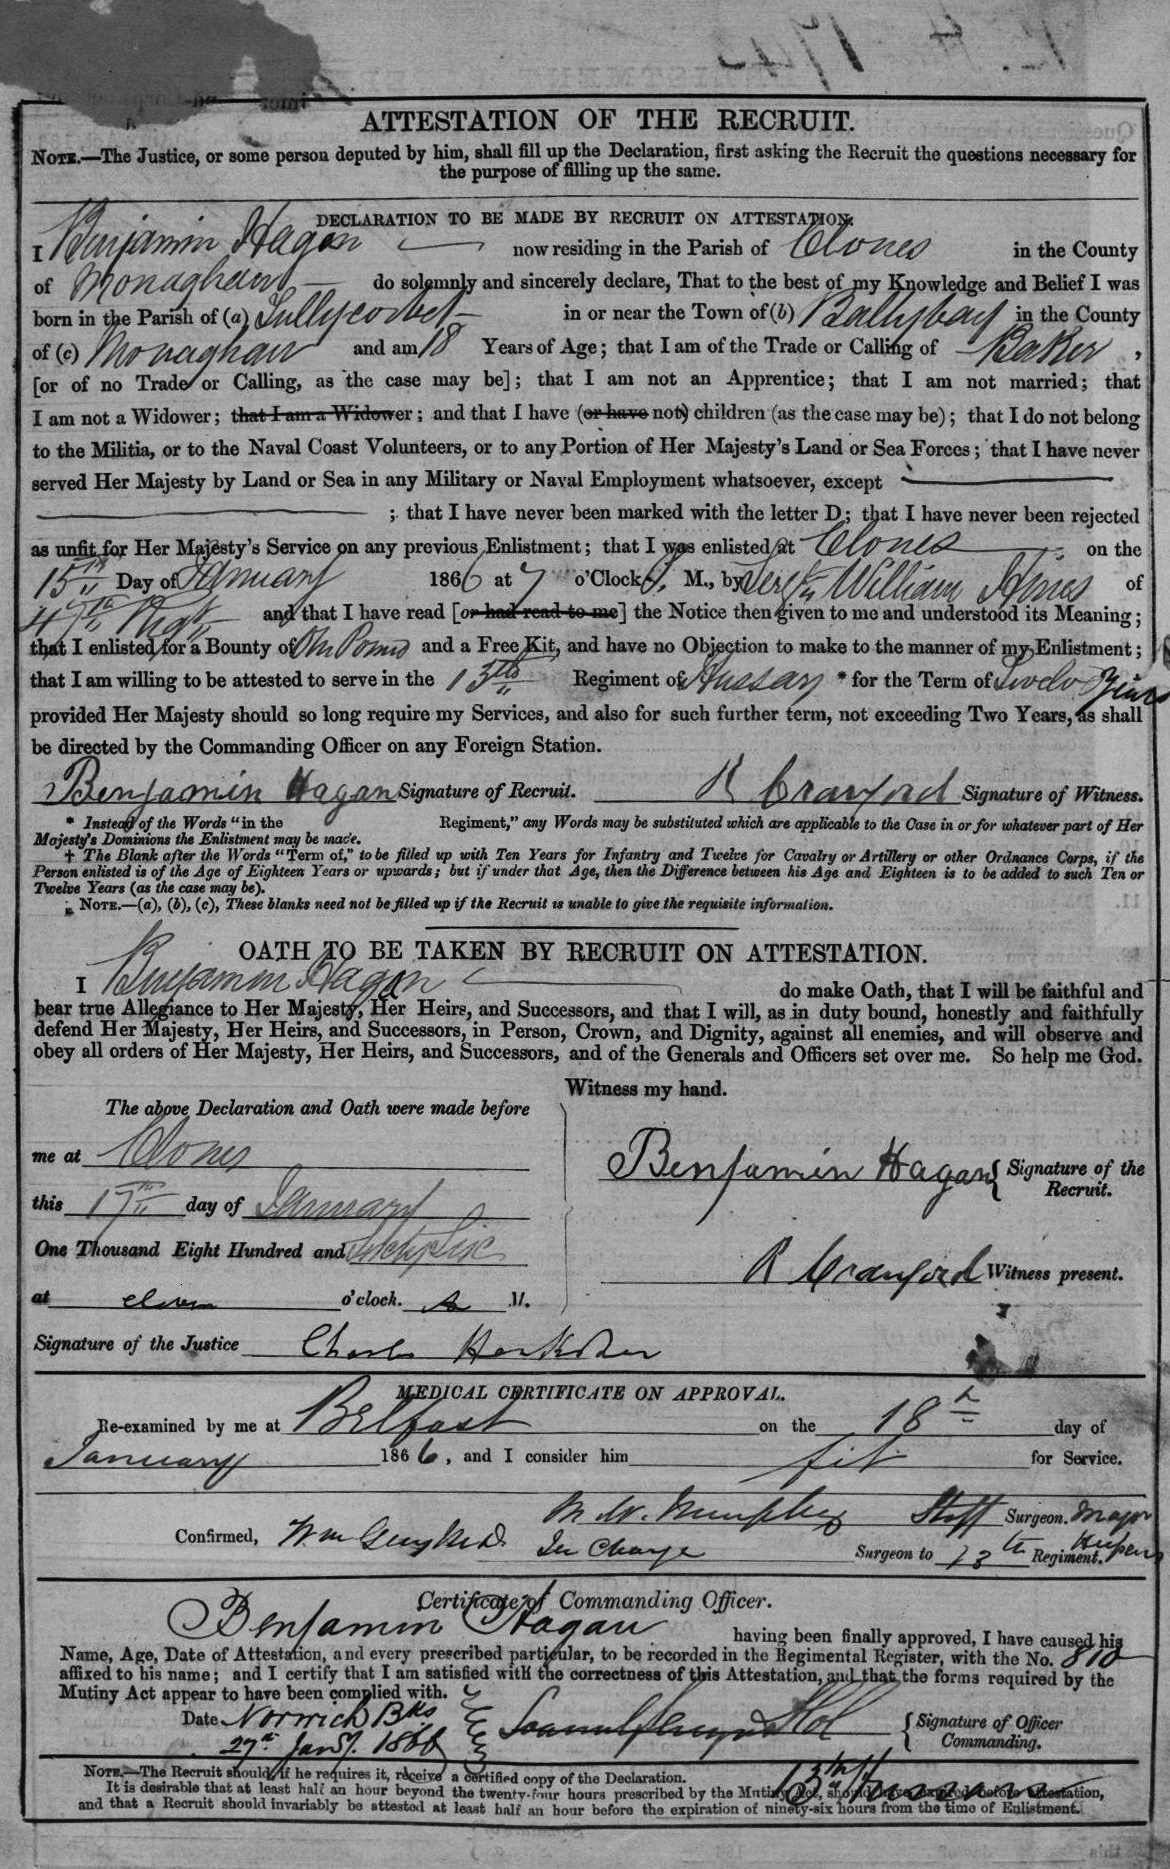 ATTESTATION OF THE RECRUIT.
NOTE.—The Justice, or some person deputed by him, shall fill up the Declaration, first asking the Recruit the questions necessary for
the purpose of filling up the same.
DECLARATION TO BE MADE BY RECRUIT ON ATTESTATION.
I Benjamin Hagan now residing in the Parish of Clones in the County
of Monaghan do solemnly and sincerely declare, That to the best of my Knowledge and Belief I was
born in the Parish of (a) Tullycorbet in or near the Town of (b) Ballybay in the County
of (c) Monaghan and am 18 Years of Age; that I am of the Trade or Calling of Baker,
[or of no Trade or Calling, as the case may be]; that I am not an Apprentice; that I am not married; that
I am not a Widower; that I am a Widower; and that I have (or have not) children (as the case may be); that I do not belong
to the Militia, or to the Naval Coast Volunteers, or to any Portion of Her Majesty's Land or Sea Forces; that I have never
served Her Majesty by Land or Sea in any Military or Naval Employment whatsoever, except
; that I have never been marked with the letter D; that I have never been rejected
as unfit for Her Majesty's Service on any previous Enlistment; that I was enlisted at Clones on the
15th Day of January 1866 at 7 o'Clock P. M., by Serjt William Hines of
47th Regt and that I have read [or had read to me] the Notice then given to me and understood its Meaning;
that I enlisted for a Bounty of One Pound and a Free Kit, and have no Objection to make to the manner of my Enlistment;
that I am willing to be attested to serve in the 13th Regiment of Hussars * for the Term of Twelve Years
provided Her Majesty should so long require my Services, and also for such further term, not exceeding Two Years, as shall
be directed by the Commanding Officer on any Foreign Station.
Benjamin Hagan Signature of Recruit. R Crawford Signature of Witness.
* Instead of the Words "in the Regiment," any Words may be substituted which are applicable to the Case in or for whatever part of Her
Majesty's Dominions the Enlistment may be made.
† The Blank after the Words "Term of," to be filled up with Ten Years for Infantry and Twelve for Cavalry or Artillery or other Ordnance Corps, if the
Person enlisted is of the Age of Eighteen Years or upwards; but if under that Age, then the Difference between his Age and Eighteen is to be added to such Ten or
Twelve Years (as the case may be).
NOTE.—(a), (b), (c), These blanks need not be filled up if the Recruit is unable to give the requisite information.
OATH TO BE TAKEN BY RECRUIT ON ATTESTATION.
I Benjamin Hagan do make Oath, that I will be faithful and
bear true Allegiance to Her Majesty, Her Heirs, and Successors, and that I will, as in duty bound, honestly and faithfully
defend Her Majesty, Her Heirs, and Successors, in Person, Crown, and Dignity, against all enemies, and will observe and
obey all orders of Her Majesty, Her Heirs, and Successors, and of the Generals and Officers set over me. So help me God.
Witness my hand.
The above Declaration and Oath were made before
me at Clones
this 17th day of January
One Thousand Eight Hundred and Sixty Six
at eleven o'clock. A M.
Benjamin Hagan Signature of the Recruit.
R Crawford Witness present.
Signature of the Justice Charles
MEDICAL CERTIFICATE ON APPROVAL.
Re-examined by me at Belfast on the 18th day of
January 1866, and I consider him fit for Service.
Staff Surgeon. Major
Confirmed, In Charge Surgeon to 13th Regiment.
Certificate of Commanding Officer.
Benjamin Hagan having been finally approved, I have caused his
Name, Age, Date of Attestation, and every prescribed particular, to be recorded in the Regimental Register, with the No. 810
affixed to his name; and I certify that I am satisfied with the correctness of this Attestation, and that the forms required by the
Mutiny Act appear to have been complied with.
Date Norwich Bks
27th Jany. 1866
Signature of Officer Commanding.
13th Hussars
NOTE.—The Recruit should, if he requires it, receive a certified copy of the Declaration.
It is desirable that at least half an hour beyond the twenty-four hours prescribed by the Mutiny Act, should have expired before Attestation,
and that a Recruit should invariably be attested at least half an hour before the expiration of ninety-six hours from the time of Enlistment.